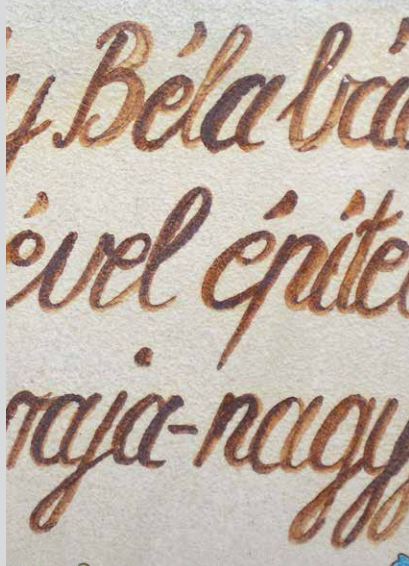 y Béla bá
ével építe
raja-nagy